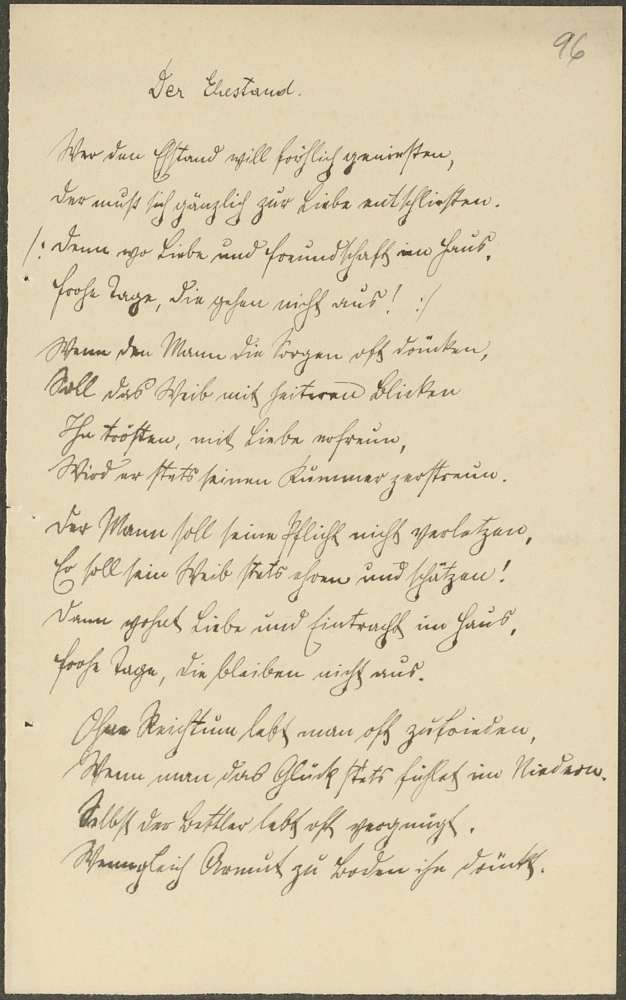 96
Der Ehestand.
Wer den Ehstand will fröhlich genießen,
Der muß sich gänzlich zur Liebe entschließen.
/: Denn wo Liebe und Freundschaft im Haus,
Frohe Tage, die gehen nicht aus! :/
Wenn den Mann die Sorgen oft drücken,
Soll das Weib mit heiteren Blicken
Ihn trösten, mit Liebe erfreun,
Wird er stets seinen Kummer zerstreun.
Der Mann soll seine Pflicht nicht verletzen,
Er soll sein Weib stets ehren und schätzen!
Dann wohnt Liebe und Eintracht im Haus,
Frohe Tage, die bleiben nicht aus.
Ohne Reichtum lebt man oft zufrieden,
Wenn man das Glück stets fühlet im Niedern.
Selbst der Bettler lebt oft vergnügt,
Wenngleich Armut zu Boden ihn drückt.